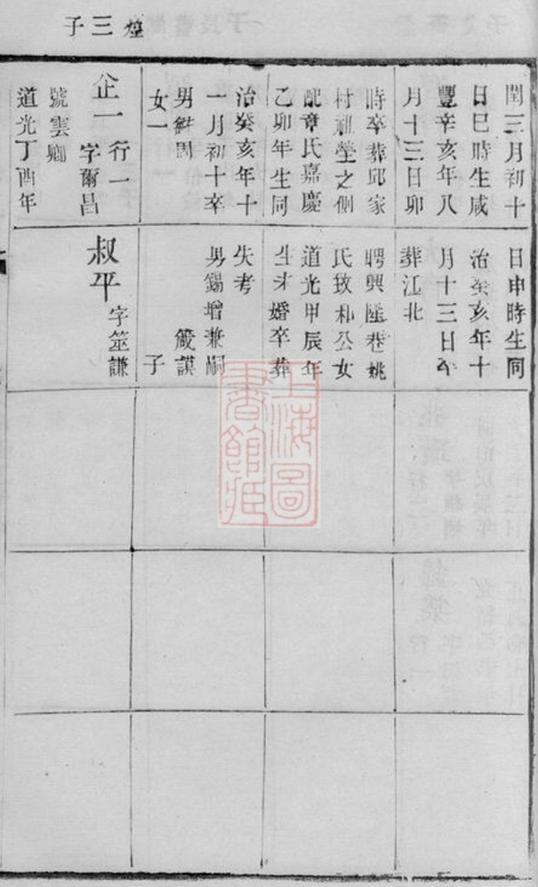 煌三子
閏三月初十
日巳時生咸
豐辛亥年八
月十三日卯
時卒葬邱家
村祖塋之側
配章氏嘉慶
乙卯年生同
治癸亥年十
一月初十卒
男
女一
企一行一
字爾昌
號雲卿
道光丁酉年
日申時生同
治癸亥年十
月十三日卒
葬江北
聘興匯巷姚
氏致和公女
道光甲辰年
生未婚卒葬
失考
男錫增兼嗣
箴謨
子
叔平字筮謙
上海圖書館藏